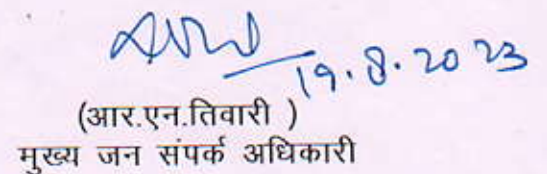 19.8.2023
(आर.एन.तिवारी )
मुख्य जन संपर्क अधिकारी